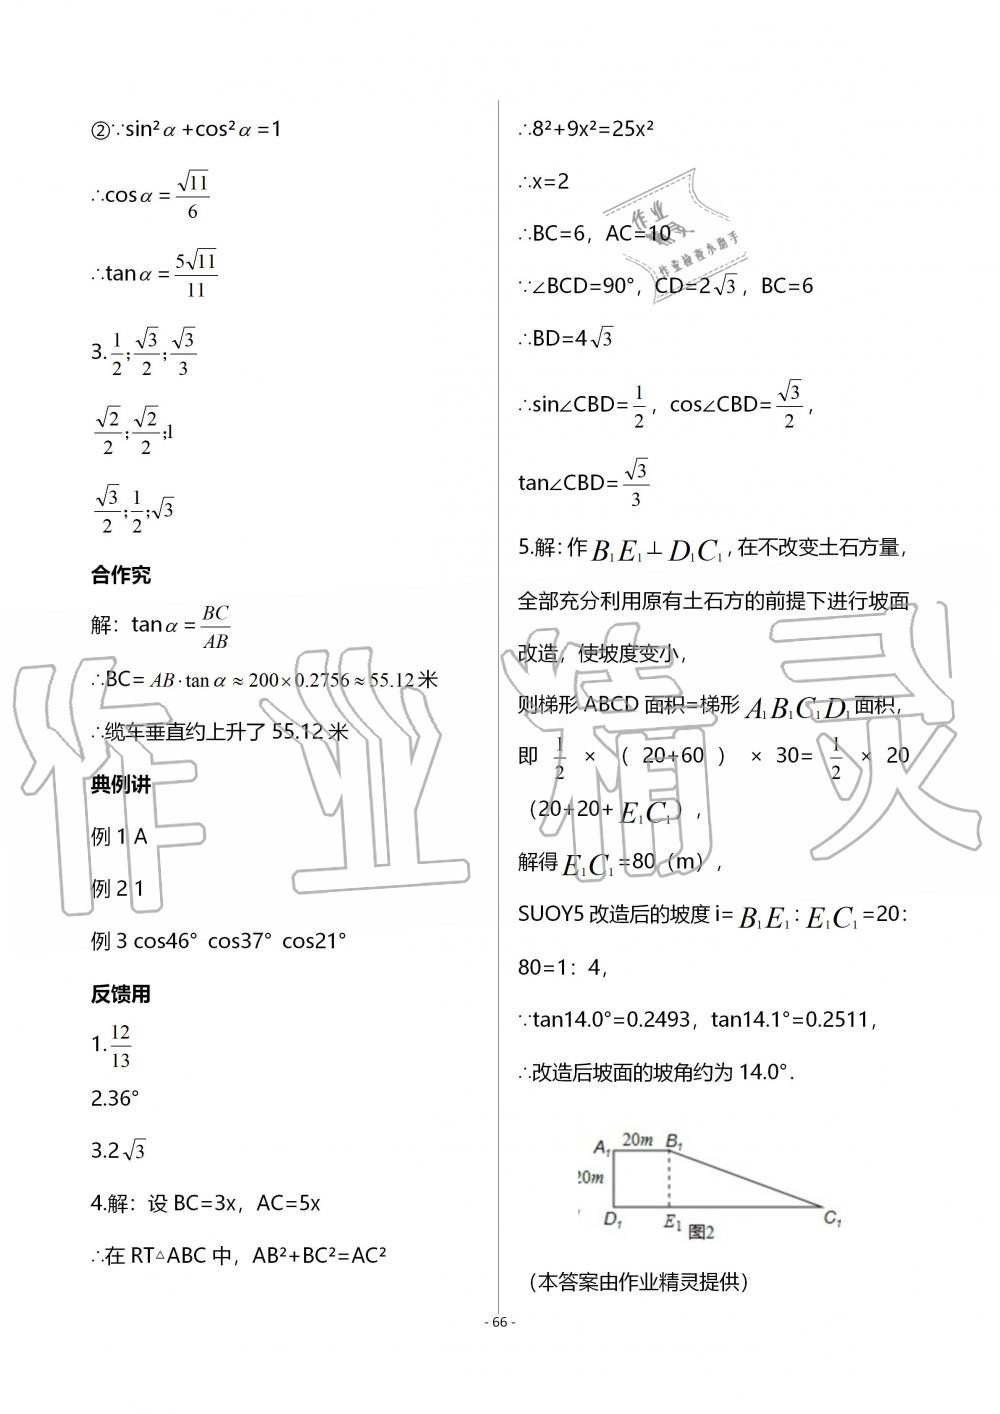 ②∵sin²α+cos²α=1
∴cosα=√11/6
∴tanα=5√11/11
3.1/2;√3/2;√3/3
√2/2;√2/2;1
√3/2;1/2;√3
合作究
解：tanα=BC/AB
∴BC=AB·tanα≈200×0.2756≈55.12米
∴缆车垂直约上升了55.12米
典例讲
例1 A
例2 1
例3 cos46° cos37° cos21°
反馈用
1.12/13
2.36°
3.2√3
4.解：设BC=3x，AC=5x
∴在RT△ABC中，AB²+BC²=AC²
∴8²+9x²=25x²
∴x=2
∴BC=6，AC=10
∵∠BCD=90°，CD=2√3，BC=6
∴BD=4√3
∴sin∠CBD=1/2，cos∠CBD=√3/2，
tan∠CBD=√3/3
5.解：作B₁E₁⊥D₁C₁，在不改变土石方量，
全部充分利用原有土石方的前提下进行坡面
改造，使坡度变小，
则梯形ABCD面积=梯形A₁B₁C₁D₁面积，
即1/2×（20+60）×30=1/2×20
（20+20+E₁C₁），
解得E₁C₁=80（m），
SUOY5改造后的坡度i=B₁E₁：E₁C₁=20：
80=1：4，
∵tan14.0°=0.2493，tan14.1°=0.2511，
∴改造后坡面的坡角约为14.0°.
A₁ 20m B₁
20m
D₁ E₁ 图2 C₁
（本答案由作业精灵提供）
- 66 -
作业精灵
作业
作业检查小助手